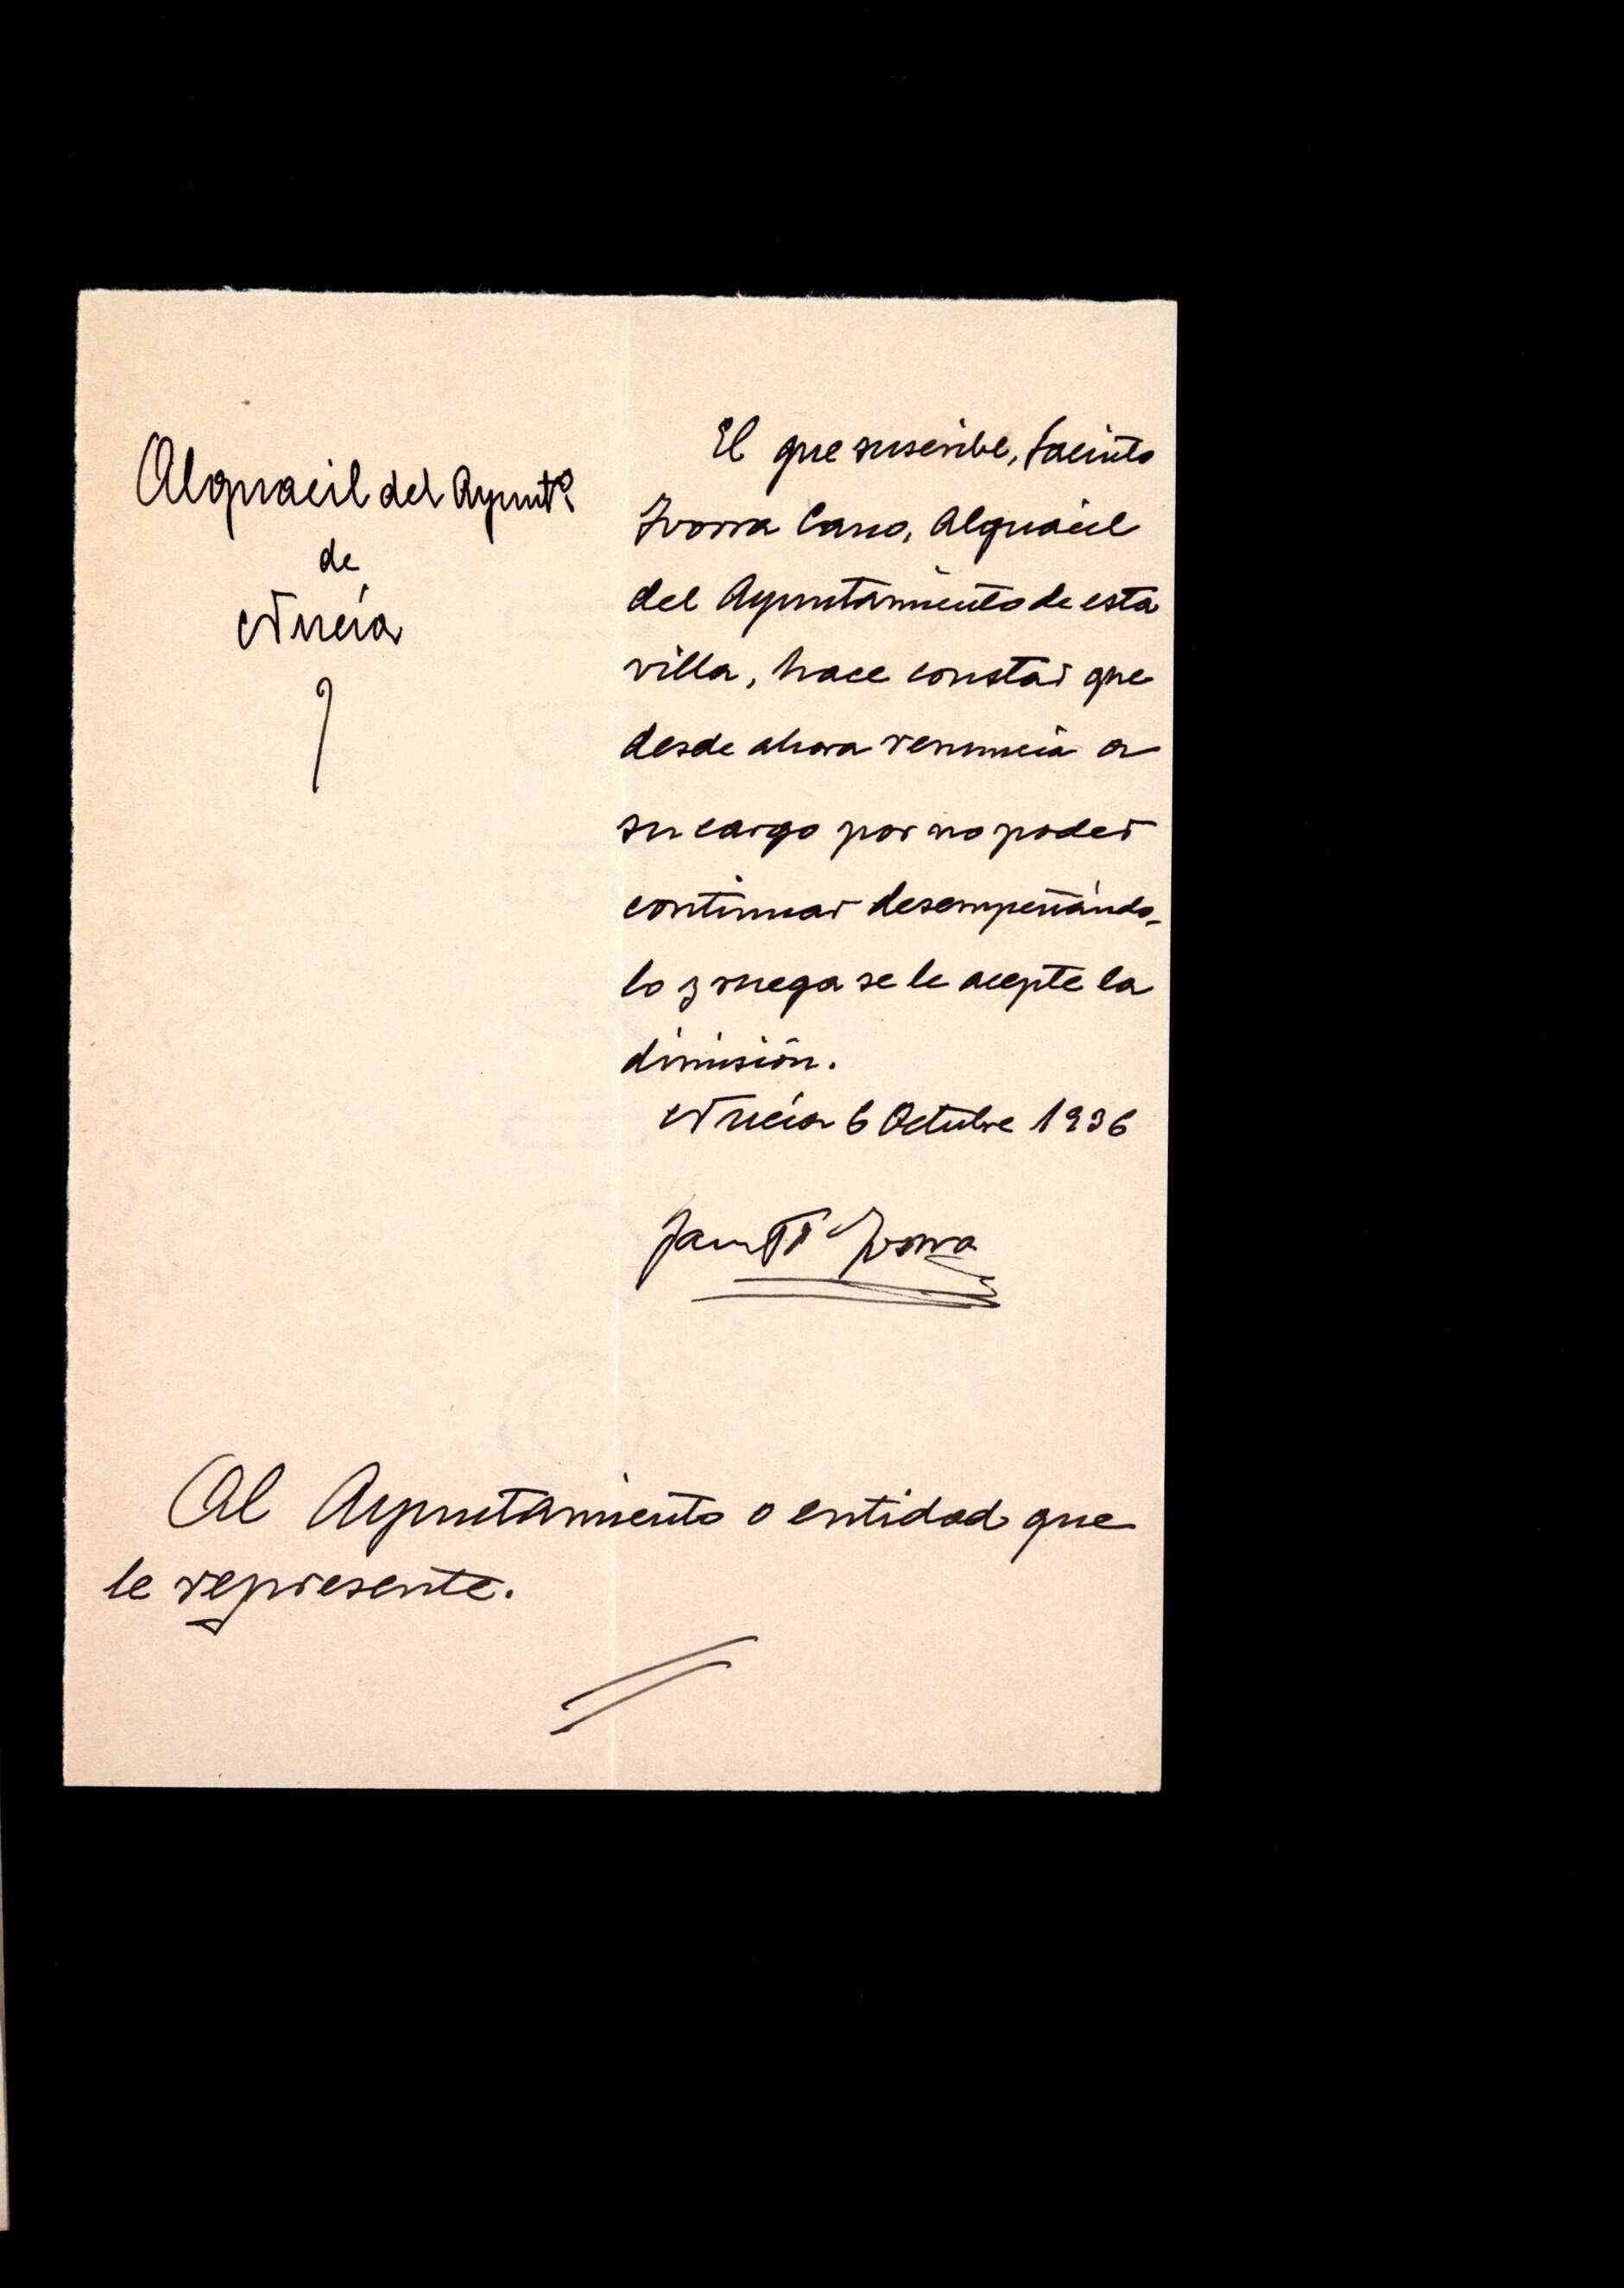 Alguacil del Ayuntº.
de
Nucía
El que suscribe, Jacinto
Ivorra Cano, Alguacil
del Ayuntamiento de esta
villa, hace constar que
desde ahora renuncia a
su cargo por no poder
continuar desempeñándo-
lo y ruega se le acepte la
dimisión.
Nucía 6 Octubre 1936
Jacinto Ivorra
Al Ayuntamiento o entidad que
le represente.